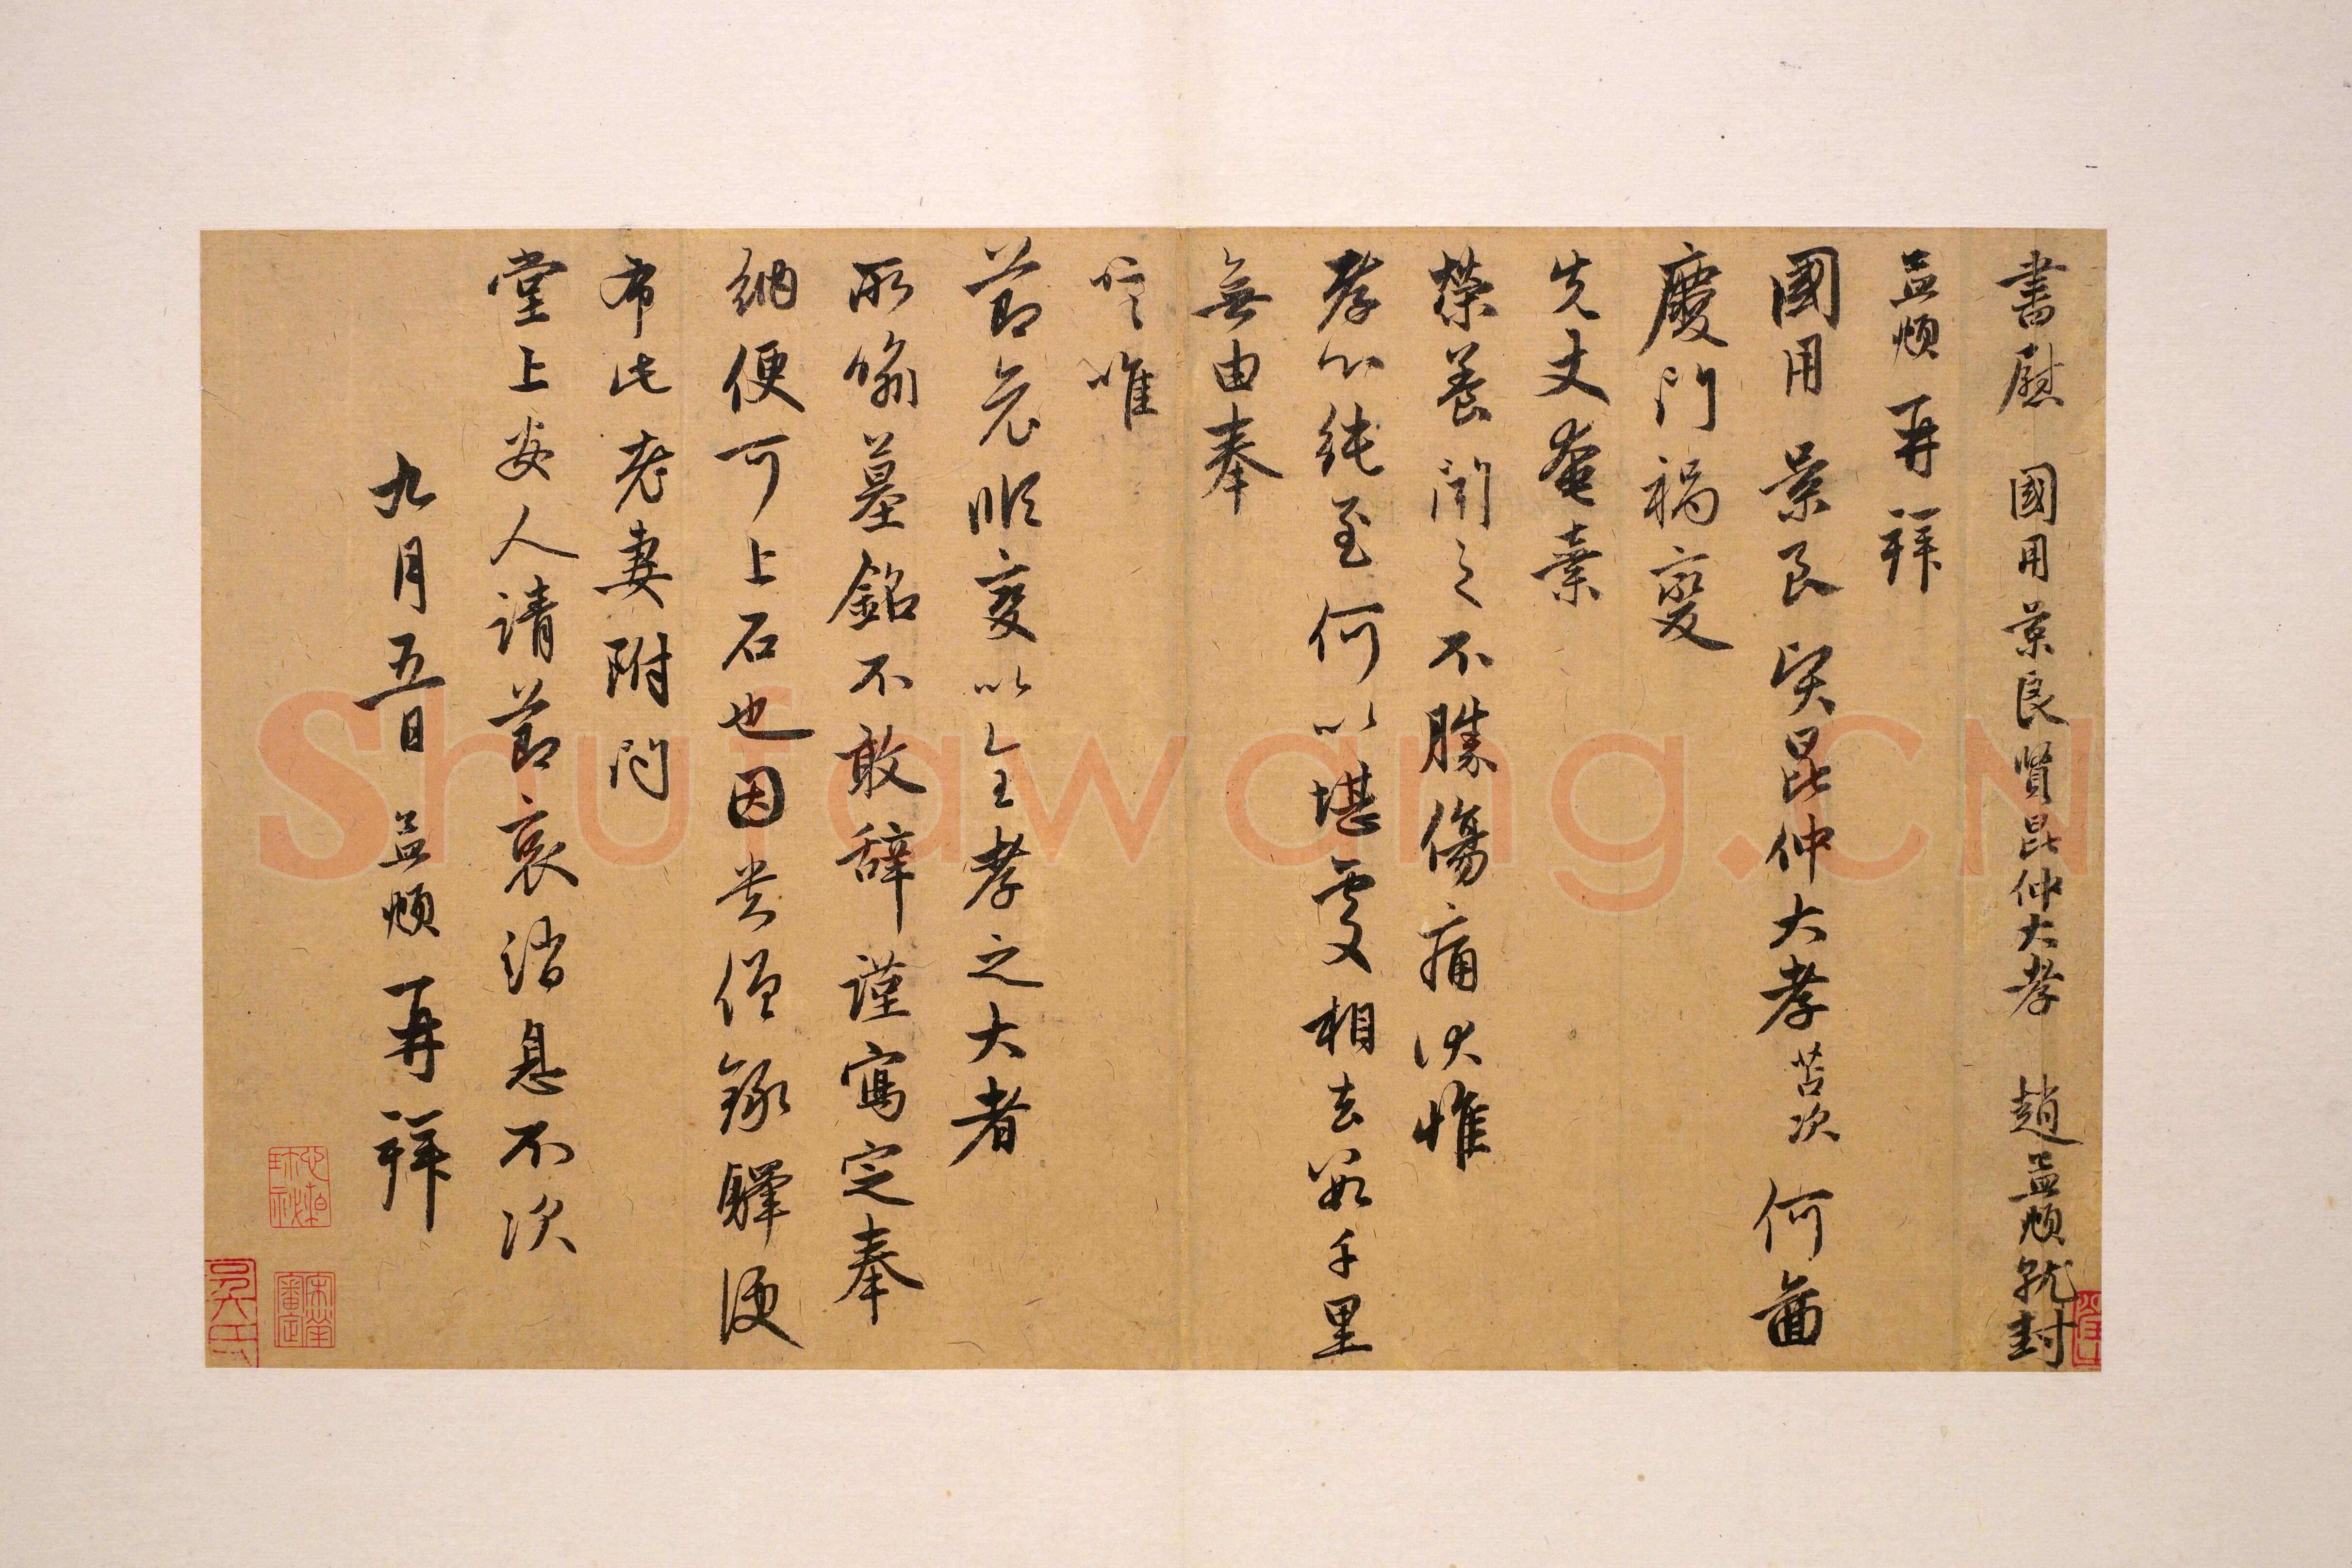 書慰 國用景良賢昆仲大孝 趙孟頫就封
孟頫再拜
國用景良賢昆仲大孝苫次何啚
慶門禍變
先丈奄棄
榮養聞之不勝傷痛伏惟
孝心純至何以堪處相去數千里
無由奉
慰唯
節哀順變以全孝之大者
所喻墓銘不敢辞謹寫定奉
納便可上石也因共僧録驛便
布此老妻附問
堂上安人請節哀諸息不次
九月五日孟頫再拜
Shufawang.CN